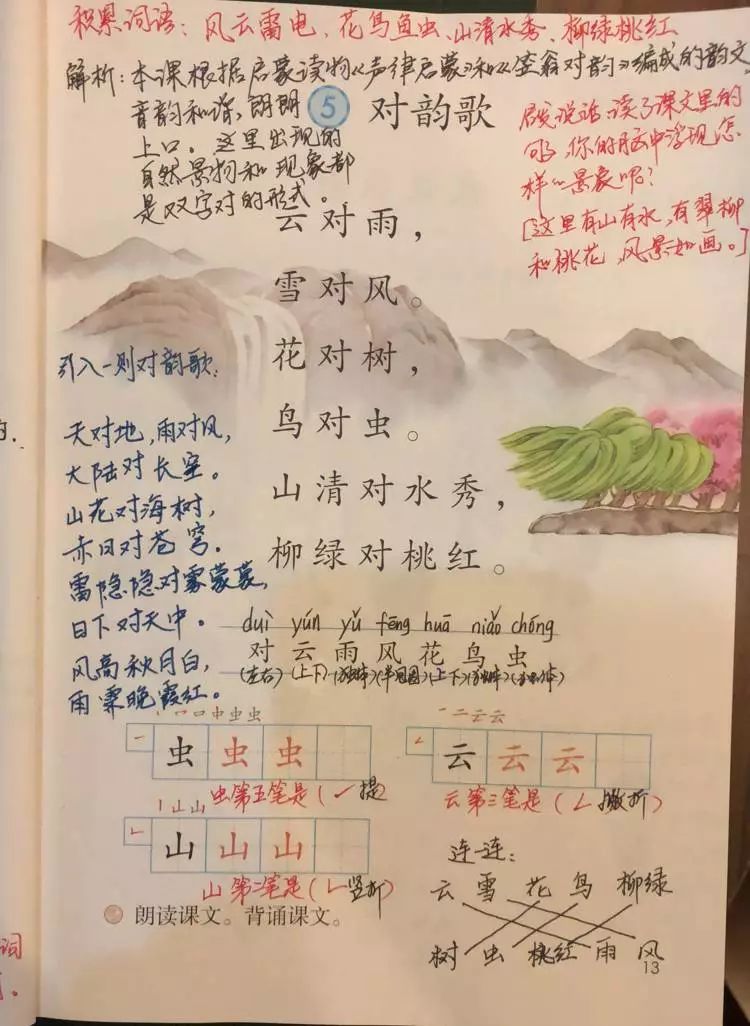 积累词语：风云雷电、花鸟鱼虫、山清水秀、柳绿桃红
解析：本课根据启蒙读物《声律启蒙》和《笠翁对韵》编成的韵文
音韵和谐，朗朗
上口。这里出现的
自然景物和现象都
是双字对的形式。
5 对韵歌
说说话：读了课文里的
句子，你的脑中浮现怎
样的景象呢？
[这里有山有水，有翠柳
和桃花，风景如画。]
云对雨，
雪对风。
花对树，
鸟对虫。
山清对水秀，
柳绿对桃红。
引入一则对韵歌：
天对地，雨对风，
大陆对长空。
山花对海树，
赤日对苍穹。
雷隐隐对雾蒙蒙，
日下对天中。
风高秋月白，
雨霁晚霞红。
duì yún yǔ fēng huā niǎo chóng
对 云 雨 风 花 鸟 虫
(左右)(上下)(独体)(半包围)(上下)(独体)(独体)
丨 口 口 中 虫 虫
虫 虫 虫
虫第五笔是(㇀提
一 二 云 云
云 云 云
云第三笔是(𠃋撇折)
丨 山 山
山 山 山
山第二笔是(𠃊竖折)
连一连：
云 雪 花 鸟 柳绿
树 虫 桃红 雨 风
朗读课文。背诵课文。
13
词